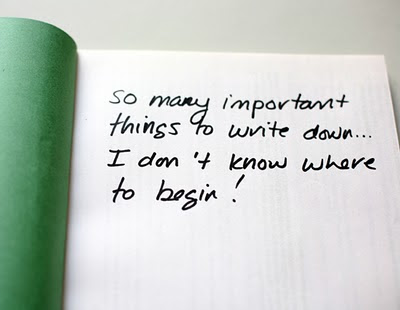 so many important
things to write down...
I don't know where
to begin!